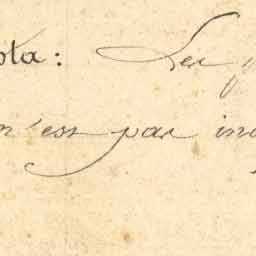 ota: Les
n'est pas in